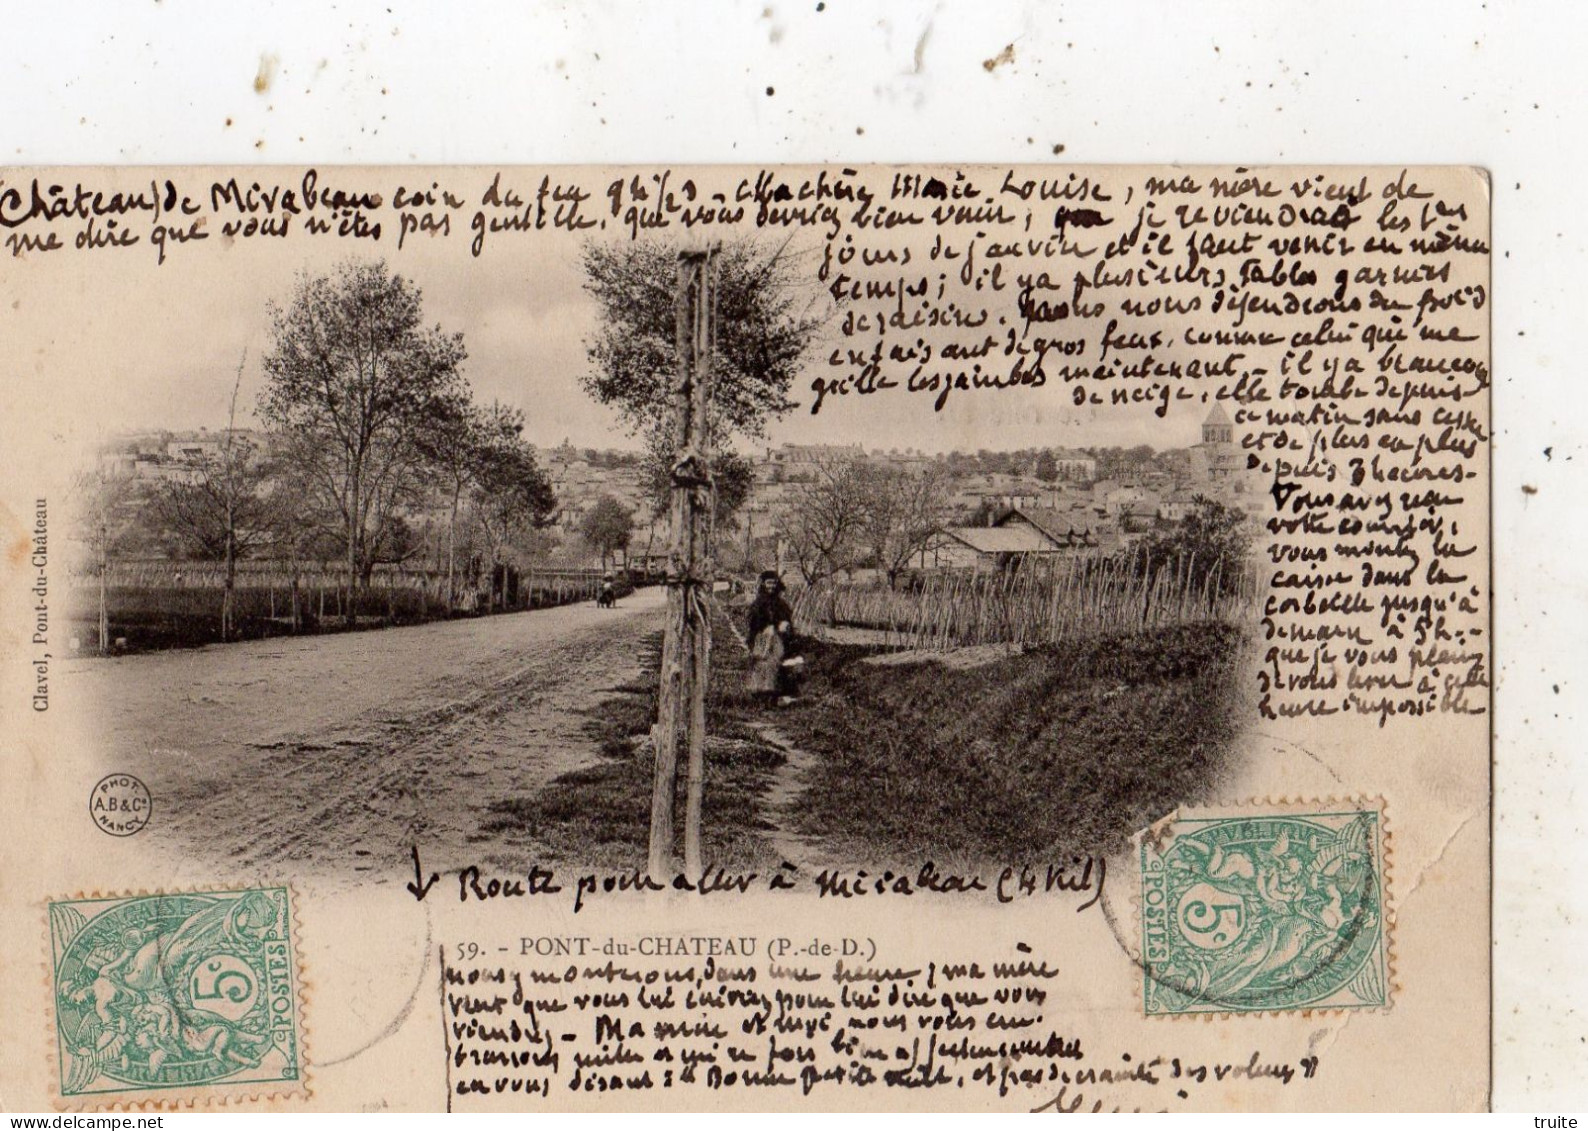 Château) de Mirabeau coin du feu 9h 1/2 – Ma chère Marie Louise, ma mère vient de
me dire que vous n'êtes pas gentille, que vous devriez bien venir, je reviendrai les 1ers
jours de janvier et il faut venir en même
temps ; il y a plusieurs tables garnies
de raisins. nous nous défendrons du froid
en faisant de gros feux, comme celui qui me
grille les jambes maintenant – il y a beaucoup
de neige, elle tombe depuis
ce matin sans cesse
et de plus en plus
depuis 3 heures –
Vous avez reçu
votre courrier,
vous montez la
caisse dans la
corbeille jusqu'à
demain à 5h. –
que je vous plains
de vous lever à cette
heure impossible
Clavel, Pont-du-Château
PHOT.
A.B & Cie
NANCY
↓ Route pour aller à Mirabeau (4 Kil)
59. - PONT-du-CHATEAU (P.-de-D.)
nous y monterons, dans une heure, ma mère
veut que vous lui écriviez pour lui dire que vous
viendrez – Ma mère et moi nous vous em.
brassons mille et mille fois bien affectueusement
en vous disant : " Bonne petite nuit, et pas de crainte des voleurs "
FRANÇAISE
RÉPUBLIQUE
5c
POSTES
RÉPUBLIQUE
FRANÇAISE
5c
POSTES
Delcampe.net
truite